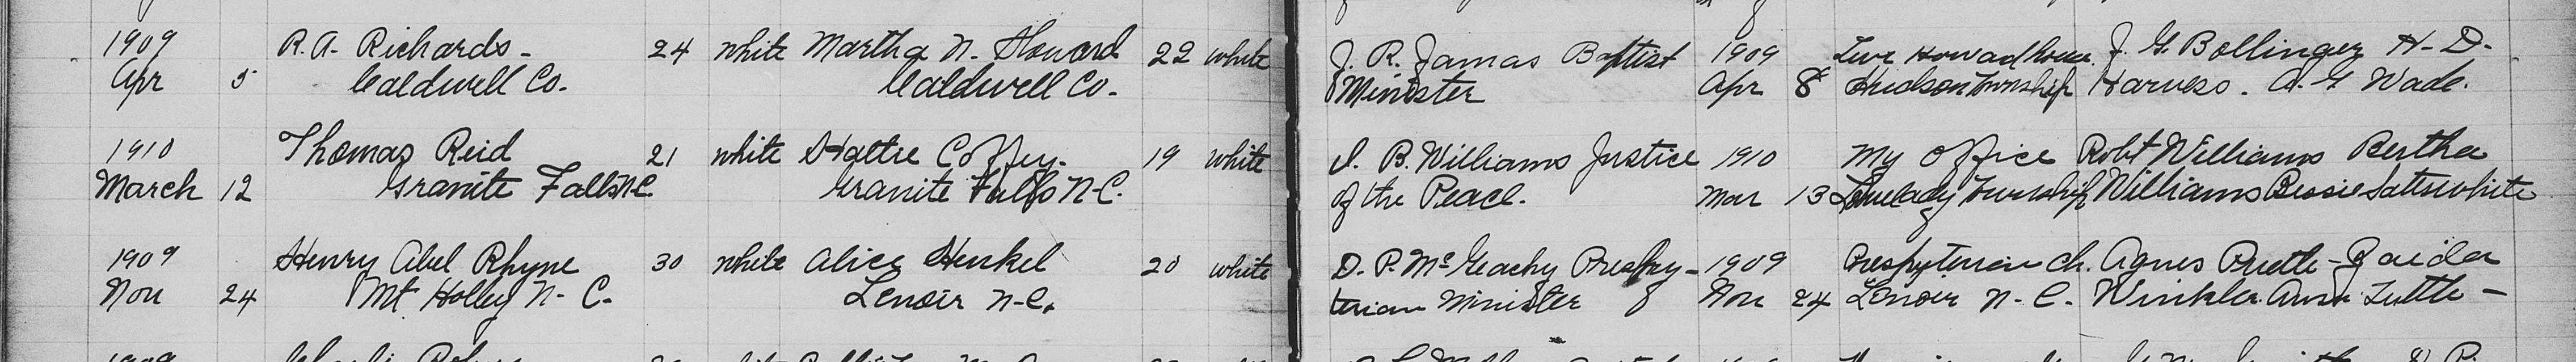 1909 R. A. Richards - 24 white Martha N. Howard 22 white J. R. Jamas Baptist 1909 Howard J. G. Bollinger H. D.
Apr 5 Caldwell Co. Caldwell Co. Minister Apr 8 Hudson Township A. G. Wade.
1910 Thomas Reid 21 white Hattie Coffey. 19 white J. B. Williams Justice 1910 My Office Robt Williams Bertha
March 12 Granite Falls N.C. Granite Falls N.C. of the Peace. Mar 13 Lovelady Township Williams Bessie Satterwhite
1909 Henry Abel Rhyne 30 white Alice Henkel 20 white D. P. McGeachy Presby- 1909 Presbyterian Ch. Agnes
Nov 24 Mt Holley N. C. Lenoir N.C. terian Minister Nov 24 Lenoir N. C. Winkler. Tuttle -